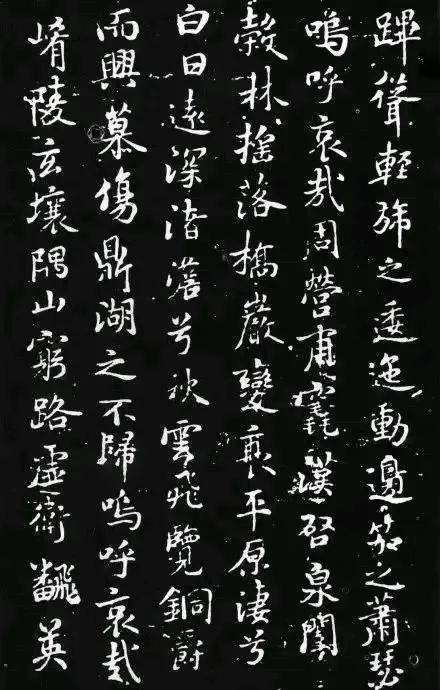 蹕聳輕旆之逶迤動邊笳之蕭瑟
嗚呼哀哉周營肅竁漢啓泉闈
穀林搖落橋巖變衰平原淒兮
白日遠深渚蕩兮秋雲飛覽銅爵
而興慕傷鼎湖之不歸嗚呼哀哉
崤陵玄壤隅山窮路虛衛飜英